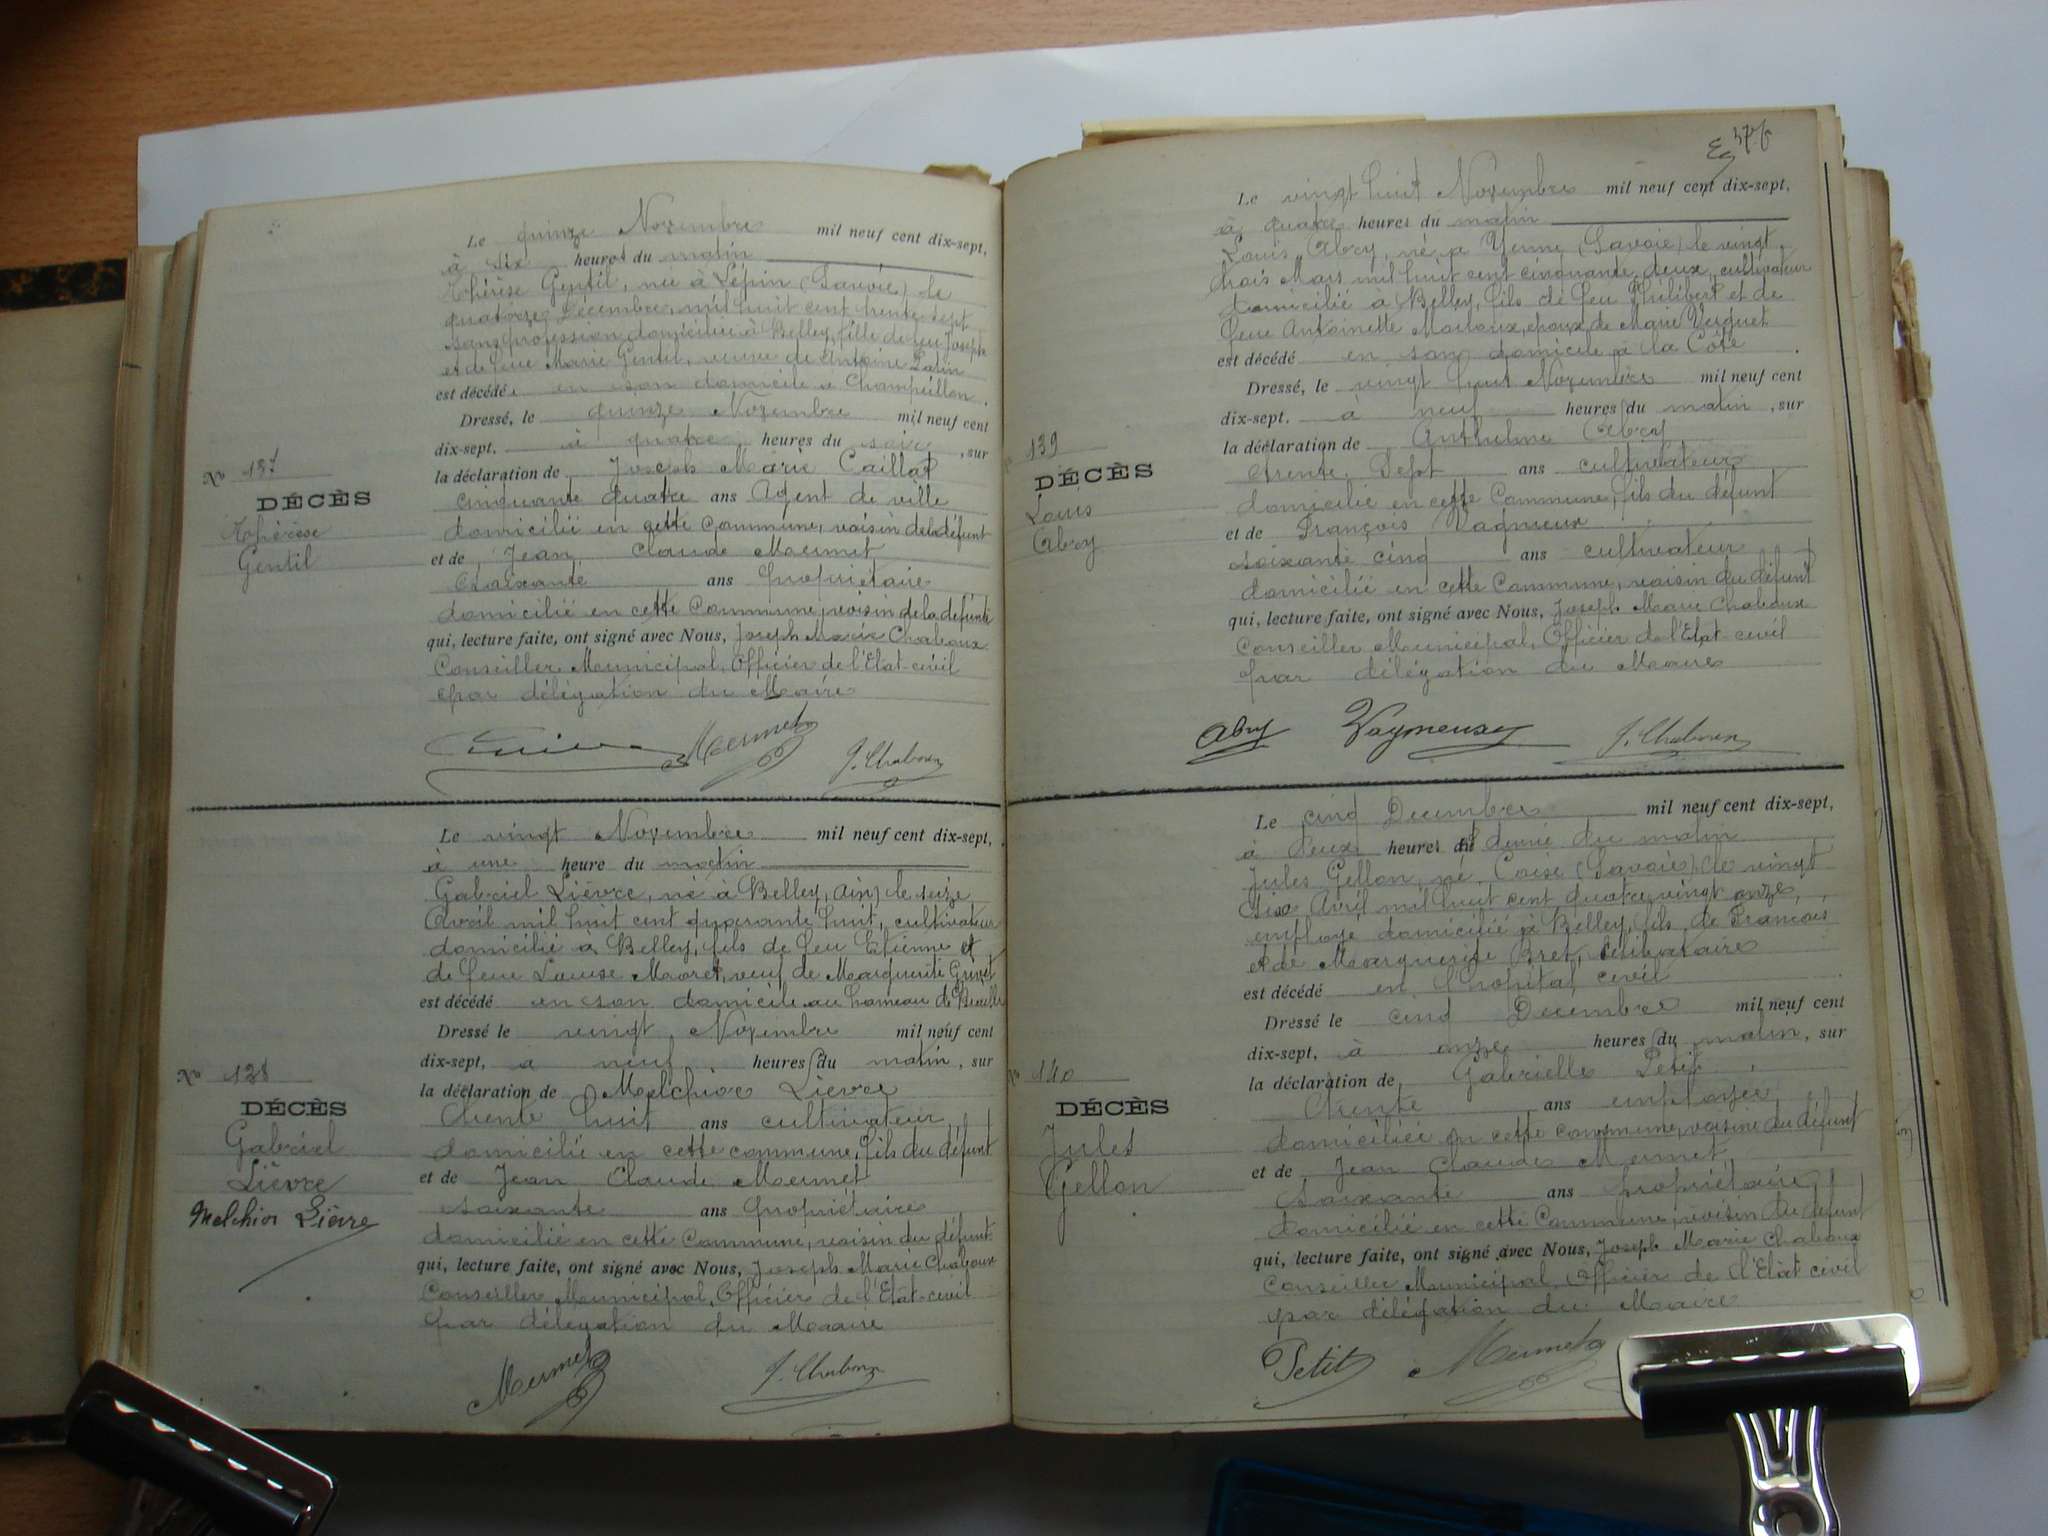 Le quinze Novembre mil neuf cent dix-sept,
à six heures du matin
Thérèse Gentil, née à Lépin (Savoie) le
quatorze Décembre mil huit cent trente sept
sans profession domiciliée à Belley, fille de feu Joseph
et de feue Marie Gentil, veuve de Antoine
est décédé, en son domicile à Champeillon.
Dressé, le quinze Novembre mil neuf cent
dix-sept. à quatre heures du soir, sur
la déclaration de Joseph Marie Caillat
cinquante quatre ans Agent de ville
domicilié en cette Commune, voisin de la défunte
et de Jean Claude Mermet
soixante ans propriétaire
domicilié en cette Commune, voisin de la défunte
qui, lecture faite, ont signé avec Nous, Joseph Marie Chaboux
Conseiller Municipal, Officier de l'Etat-civil
par délégation du Maire
No 137
DÉCÈS
Thérèse
Gentil
Mermet J. Chaboux
Le vingt Novembre mil neuf cent dix-sept,
à une heure du matin
Gabriel Lièvre, né à Belley, Ain) le seize
Avril mil huit cent quarante huit, cultivateur
domicilié à Belley, fils de feu Etienne et
de feue Louise Moret, veuf de Marguerite
est décédé en son domicile au hameau de
Dressé le vingt Novembre mil neuf cent
dix-sept, à neuf heures du matin, sur
la déclaration de Melchior Lièvre
trente huit ans cultivateur
domicilié en cette commune, fils du défunt
et de Jean Claude Mermet
soixante ans propriétaire
domicilié en cette Commune, voisin du défunt
qui, lecture faite, ont signé avec Nous, Joseph Marie Chaboux
Conseiller Municipal, Officier de l'Etat-civil
par délégation du Maire
No 138
DÉCÈS
Gabriel
Lièvre
Melchior Lièvre
Mermet J. Chaboux
Le vingt huit Novembre mil neuf cent dix-sept,
à quatre heures du matin
Louis Abry, né à Yenne (Savoie) le vingt
trois Mars mil huit cent cinquante deux, cultivateur
domicilié à Belley, fils de feu Philibert et de
feue Antoinette époux de Marie
est décédé en son domicile à la Côte.
Dressé, le vingt huit Novembre mil neuf cent
dix-sept. à neuf heures du matin, sur
la déclaration de Anthelme Abry
trente Sept ans cultivateur
domicilié en cette Commune, fils du défunt
et de François Vagneux
soixante cinq ans cultivateur
domicilié en cette Commune, voisin du défunt
qui, lecture faite, ont signé avec Nous, Joseph Marie Chaboux
Conseiller Municipal, Officier de l'Etat-civil
par délégation du Maire
139
DÉCÈS
Louis
Abry
Abry Vagneux J. Chaboux
Le cinq Decembre mil neuf cent dix-sept,
à deux heures et demie du matin
Jules Gellon, né Coise (Savoie) le vingt
six Avril mil huit cent quatre vingt onze,
employé domicilié à Belley, fils de François
et de Marguerite Bret, célibataire
est décédé en l'hopital civil
Dressé le cinq Decembre mil neuf cent
dix-sept, à onze heures du matin, sur
la déclaration de Gabrielle Petit
trente ans employée
domiciliée en cette commune, voisine du défunt
et de Jean Claude Mermet
soixante ans propriétaire
domicilié en cette Commune, voisin du défunt
qui, lecture faite, ont signé avec Nous, Joseph Marie Chaboux
Conseiller Municipal, Officier de l'Etat civil
par délégation du Maire
No 140
DÉCÈS
Jules
Gellon
Petit Mermet